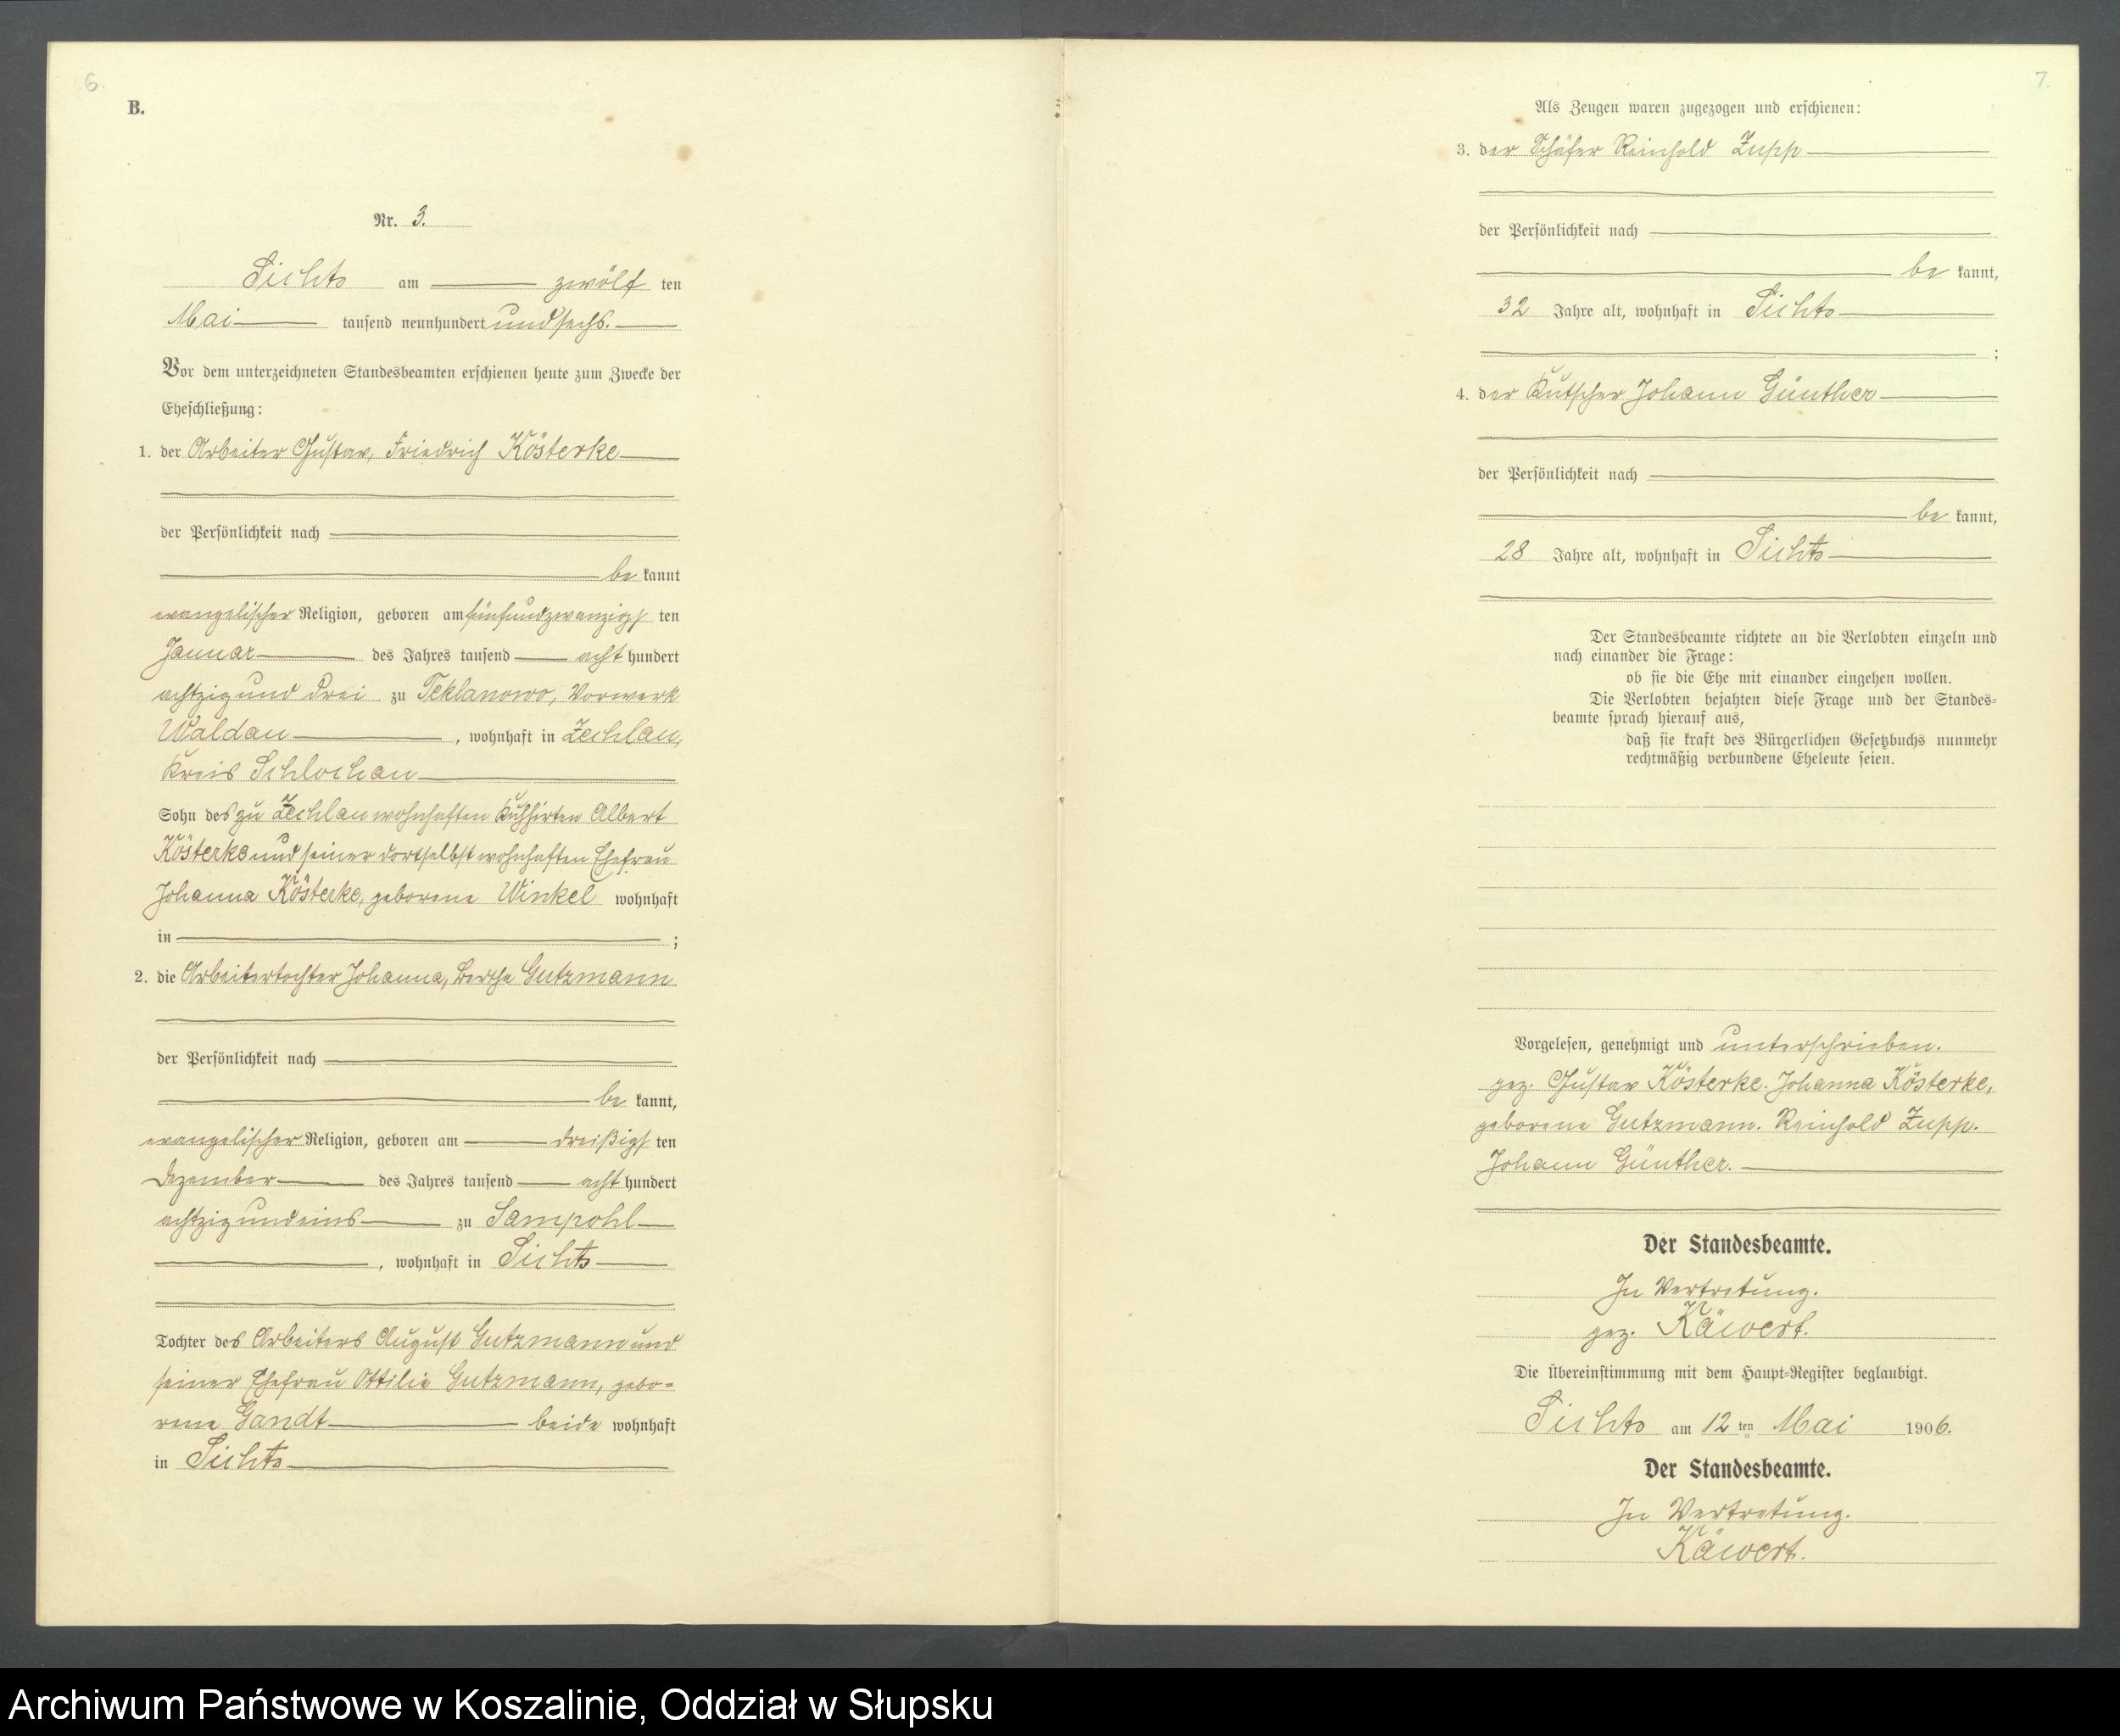 6.
B.
Nr. 3.
Sichts am zwölf ten
Mai tausend neunhundert und sechs.
Vor dem unterzeichneten Standesbeamten erschienen heute zum Zwecke der
Eheschließung:
1. der Arbeiter Gustav, Friedrich Kösterke
der Persönlichkeit nach
be kannt
evangelischer Religion, geboren am fünfundzwanzigs ten
Januar des Jahres tausend acht hundert
achtzig und drei zu Teklanowo, Vorwerk
Waldau, wohnhaft in Zechlau,
Kreis Schlochau
Sohn des zu Zechlau wohnhaften Kuhhirten Albert
Kösterke und seiner dortselbst wohnhaften Ehefrau
Johanna Kösterke, geborene Winkel wohnhaft
in ;
2. die Arbeitertochter Johanna, Bertha Gutzmann
der Persönlichkeit nach
be kannt,
evangelischer Religion, geboren am dreißigs ten
Dezember des Jahres tausend acht hundert
achtzig und eins zu Sampohl
, wohnhaft in Sichts
Tochter des Arbeiters August Gutzmann und
seiner Ehefrau Ottilie Gutzmann, gebo-
rene Gandt beide wohnhaft
in Sichts
7.
Als Zeugen waren zugezogen und erschienen:
3. der Schäfer Reinhold Zupp
der Persönlichkeit nach
be kannt,
32 Jahre alt, wohnhaft in Sichts
;
4. der Kutscher Johann Günther
der Persönlichkeit nach
be kannt,
28 Jahre alt, wohnhaft in Sichts
Der Standesbeamte richtete an die Verlobten einzeln und
nach einander die Frage:
ob sie die Ehe mit einander eingehen wollen.
Die Verlobten bejahten diese Frage und der Standes-
beamte sprach hierauf aus,
daß sie kraft des Bürgerlichen Gesetzbuchs nunmehr
rechtmäßig verbundene Eheleute seien.
Vorgelesen, genehmigt und unterschrieben.
gez. Gustav Kösterke. Johanna Kösterke,
geborene Gutzmann. Reinhold Zupp.
Johann Günther.
Der Standesbeamte.
In Vertretung.
gez. Käwert.
Die Übereinstimmung mit dem Haupt-Register beglaubigt.
Sichts am 12 ten Mai 1906.
Der Standesbeamte.
In Vertretung.
Käwert.
Archiwum Państwowe w Koszalinie, Oddział w Słupsku